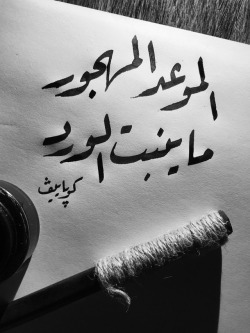 الموعد المهجور
ماينبت الورد